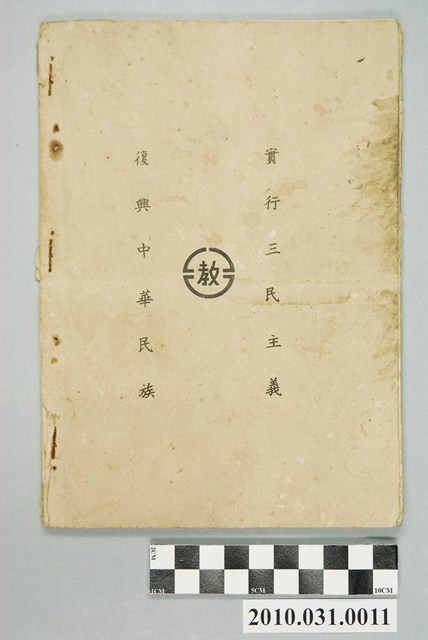 實行三民主義
教
復興中華民族
2CM
1CM
5CM
10CM
2010.031.0011